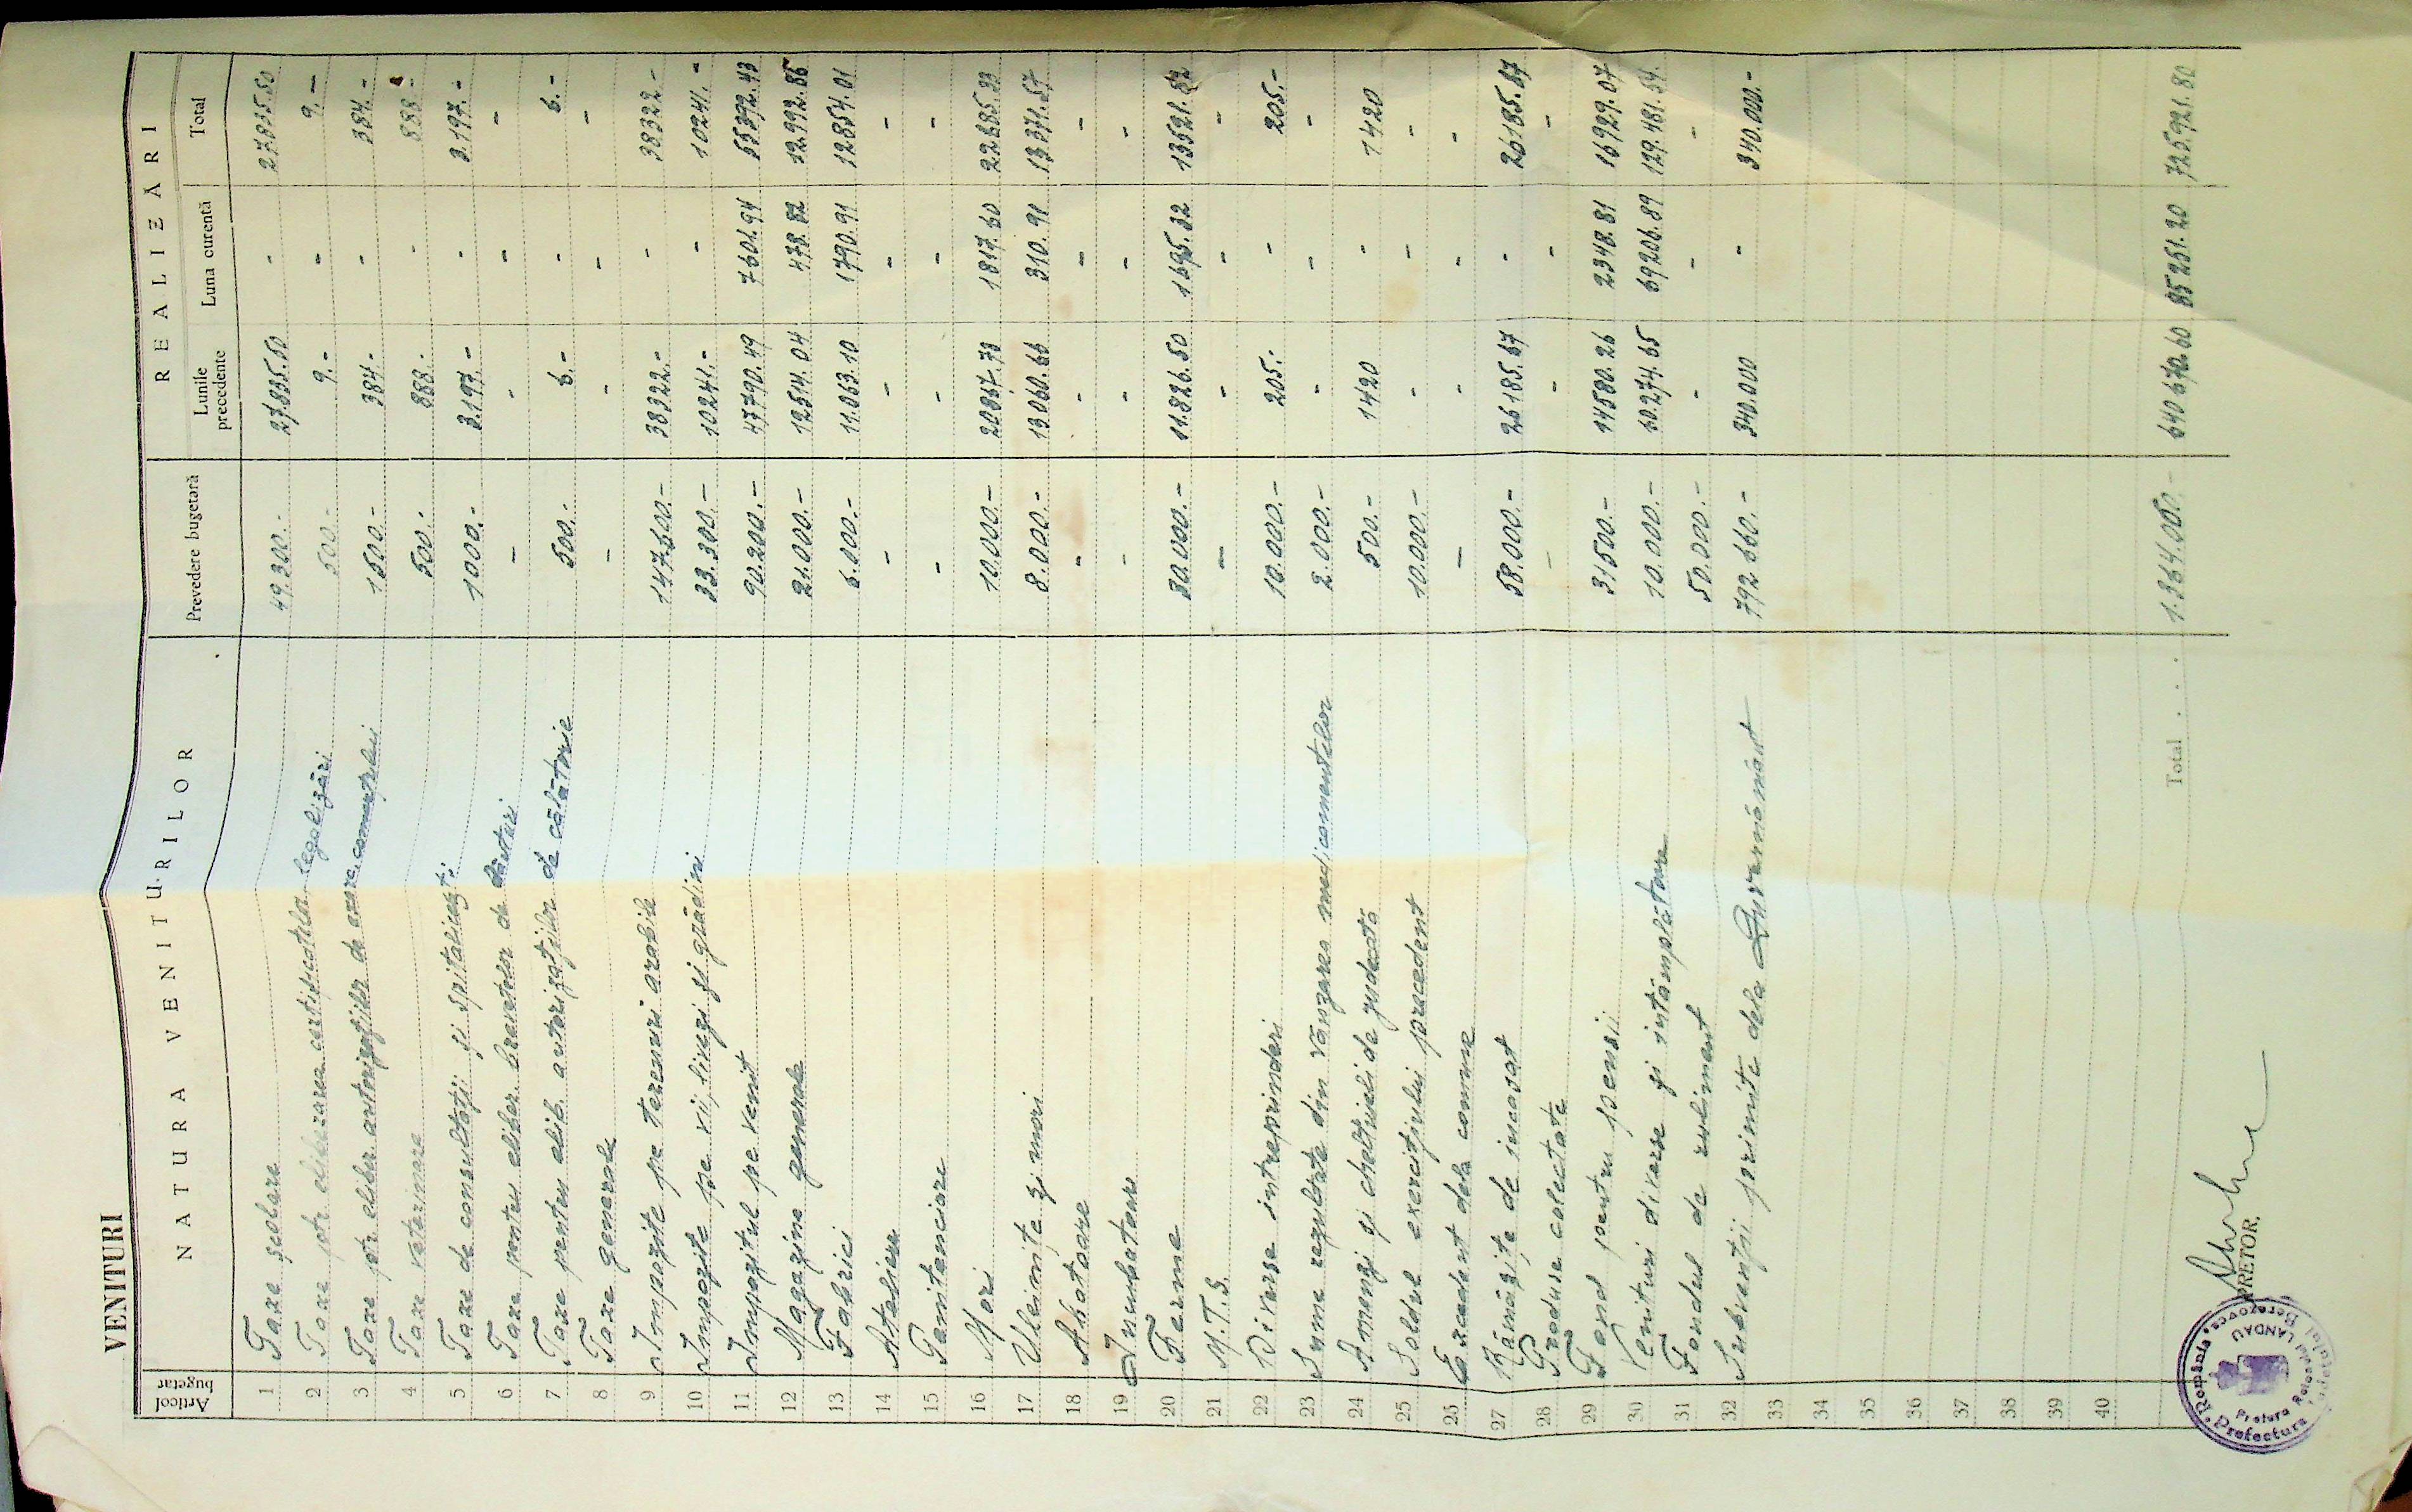 VENITURI
Articol bugetar | NATURA VENITURILOR | Prevedere bugetară | REALIZARI
Lunile precedente | Luna curentă | Total
1 Taxe școlare 49.300.- 27.835.50 - 27.835.50
2 Taxe ptr. eliberarea certificatelor legalizări 500.- 9.- - 9.-
3 Taxe ptr. eliber. autorizațiilor de construcții 1500.- 384.- - 384.-
4 Taxe veterinare 500.- 888.- - 888.-
5 Taxe de consultații și spitalicești 1000.- 3.197.- - 3.197.-
6 Taxe pentru eliber. brevetelor de băuturi - - - -
7 Taxe pentru elib. autorizațiilor de călătorie 500.- 6.- - 6.-
8 Taxe generale - - - -
9 Impozite pe terenuri arabile 147.600.- 38322.- - 38322.-
10 Impozite pe vii, livezi și grădini 33.300.- 10241.- - 10241.-
11 Impozitul pe venit 90.200.- 47790.49 7601.94 55392.43
12 Magazine generale 21.000.- 12514.04 478.82 12.992.86
13 Fabrici 6.000.- 11.063.10 1790.91 12854.01
14 Ateliere - - - -
15 Penitenciare - - - -
16 Mori 10.000.- 20867.73 1817.60 22685.33
17 Uleinițe și mori 8.000.- 13.060.66 310.91 13371.57
18 Abatoare - - - -
19 Incubatoare - - - -
20 Ferme 30.000.- 11.826.50 1695.32 13521.82
21 M.T.S. - - - -
22 Diverse intreprinderi 10.000.- 205.- - 205.-
23 Sume rezultate din vânzarea medicamentelor 2.000.- - - -
24 Amenzi și cheltuieli de judecată 500.- 1420 - 1420
25 Soldul exercițiului precedent 10.000.- - - -
25 Excedent dela comune - - - -
27 Rămășițe de incasat 58.000.- 26185.67 - 26185.67
28 Produse colectate - - - -
29 Fond pentru pensii 31500.- 14580.26 2348.81 16929.07
30 Venituri diverse și intâmplătoare 10.000.- 60.274.65 69206.89 129.481.54
31 Fondul de rulment 50.000.- - - -
32 Subvenții primite dela Guvernământ 792.660.- 340.000 - 340.000.-
33
34
35
36
37
38
39
40
Total . . . 1.364.060.- 640 670.60 85251.20 725.921.80
PRETOR,
România
Prefectura
Pretura
LANDAU